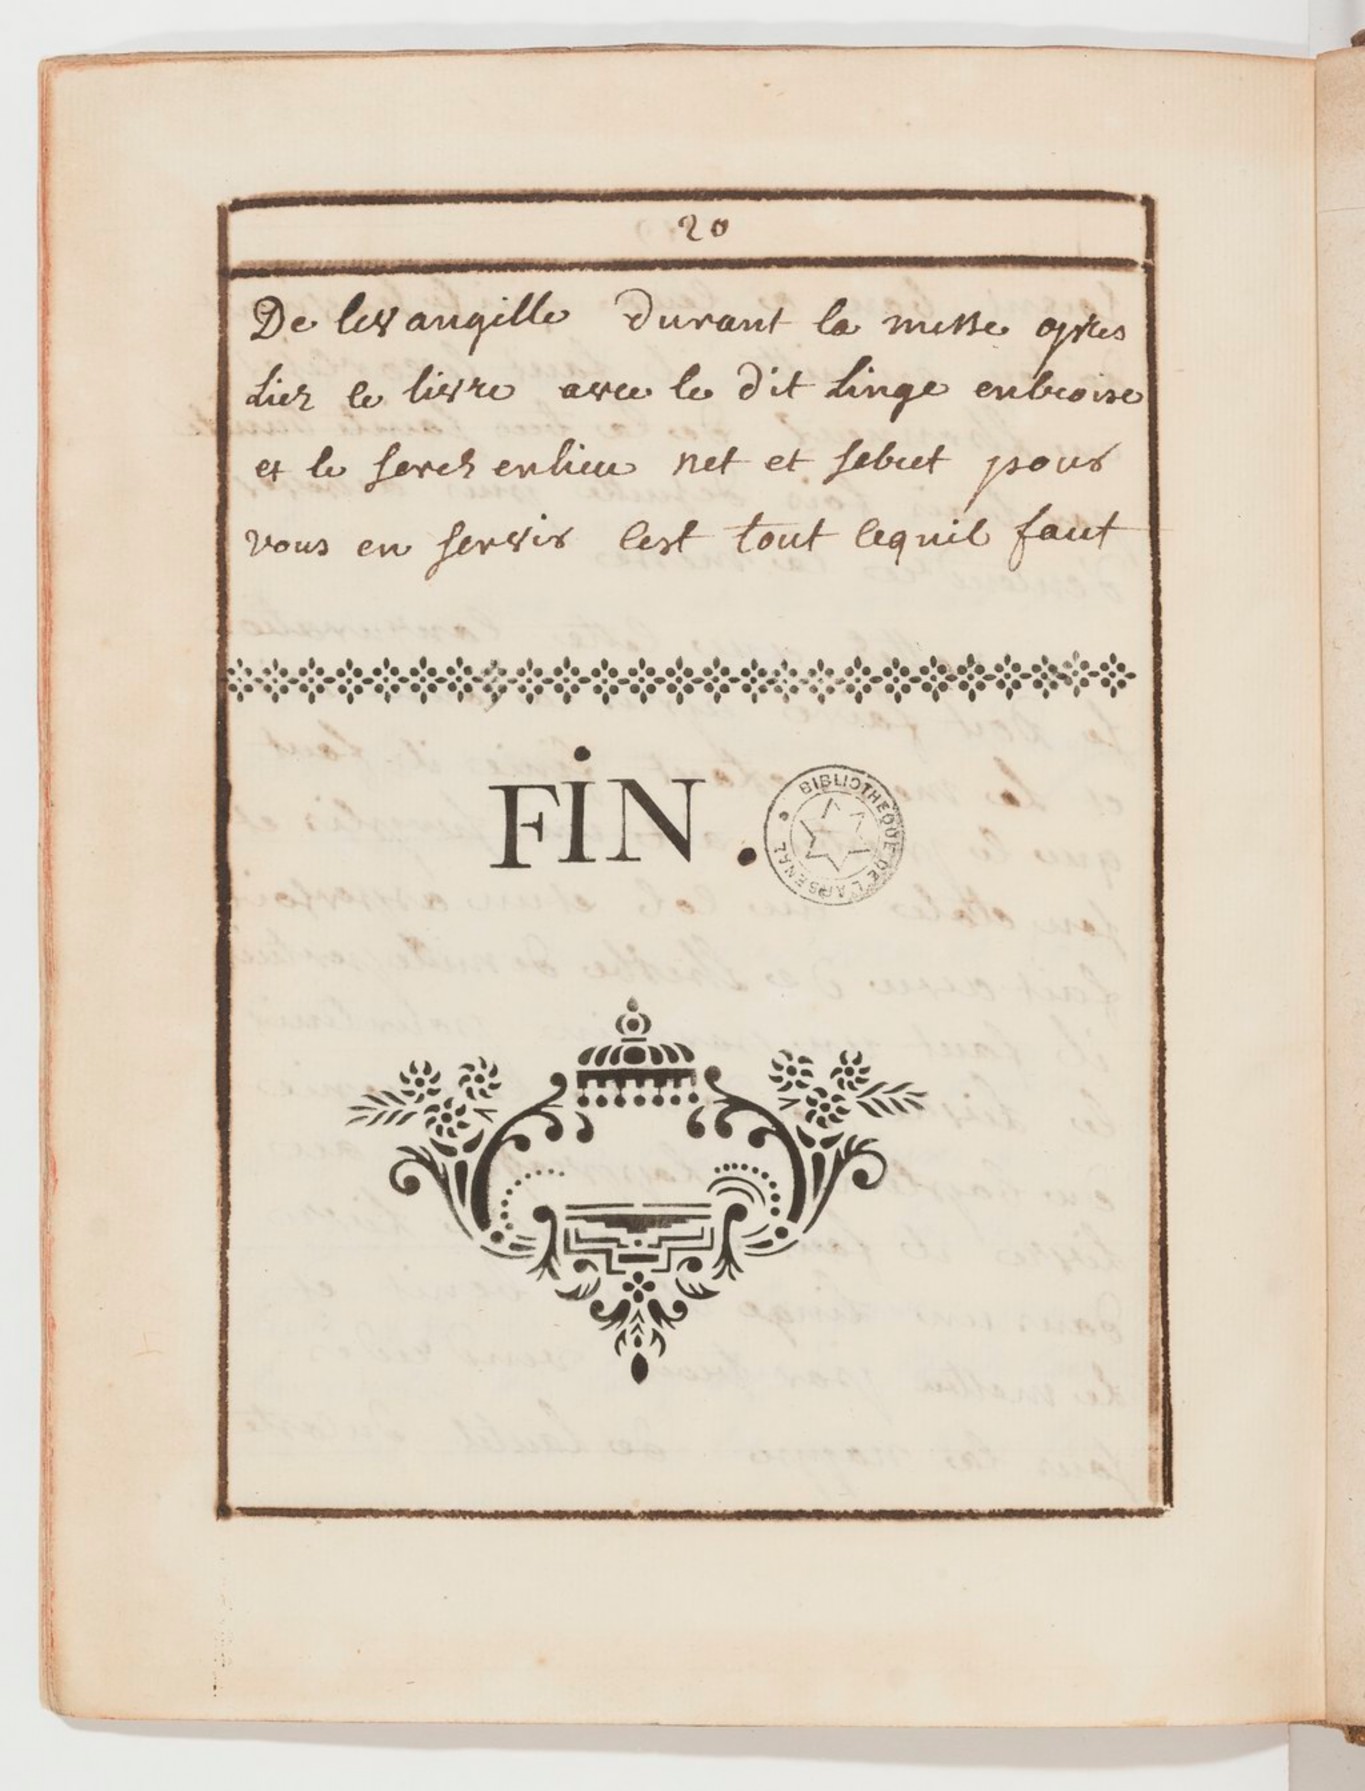 20
De levangille durant la messe apres
Liez le livre avec le dit Linge en croise
et le serez en lieu net et sebret pour
vous en servir cest tout cequil faut
FiN.
BIBLIOTHEQUE DE L'ARSENAL